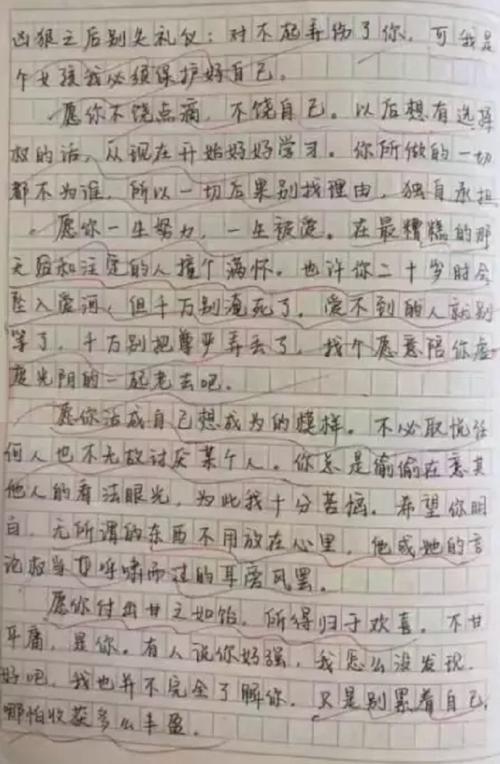 凶狠之后别失礼仪：对不起弄伤了你，可我是
个女孩我必须保护好自己。
愿你不饶点滴，不饶自己。以后想有选择
权的话，从现在开始好好学习。你所做的一切
都不为谁，所以一切后果别找理由，独自承担
愿你一生努力，一生被爱。在最糟糕的那
天跟和注定的人撞个满怀。也许你二十岁时会
坠入爱河，但千万别淹死了，爱不到的人就别
等了，千万别把尊严弄丢了，找个愿意陪你虚
度光阴的一起老去吧。
愿你活成自己想成为的模样。不必取悦任
何人也不无故讨厌某个人。你总是偷偷在意其
他人的看法眼光，为此我十分苦恼。希望你明
白，无所谓的东西不用放在心里，他或她的言
论权当呼啸而过的耳旁风罢。
愿你付出甘之如饴，所得归于欢喜。不甘
平庸，是你。有人说你好强，我怎么没发现。
好吧，我也并不完全了解你。只是别累着自己，
哪怕收获多么丰盈。